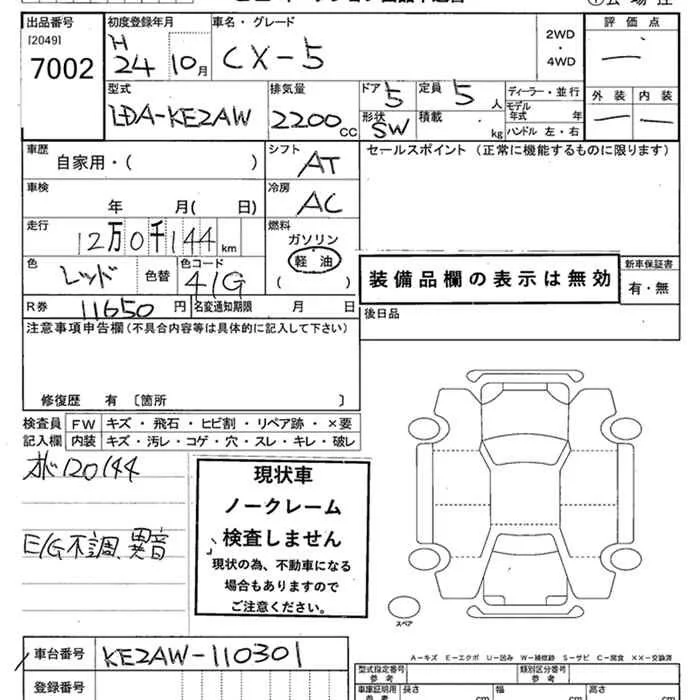 出品番号 初度登録年月 車名・グレード 評価点
[2049] H 2WD
7002 24 10月 CX-5 ・ 4WD —
型式 排気量 ドア 5 定員 5 人 ディーラー・並行 外装 内装
LDA-KE2AW 2200cc 形状 SW 積載 kg モデル年式 年 — —
ハンドル 左・右
車歴 シフト セールスポイント (正常に機能するものに限ります)
自家用・( ) AT
車検 冷房
年 月( 日) AC
走行 燃料
12万0千144km ガソリン
色 色コード 軽油 装備品欄の表示は無効 新車保証書
レッド 色替 41G ( ) 有・無
R券 11650円 名変通知期限 月 日 後日品
注意事項申告欄(不具合内容等は具体的に記入して下さい)
修復歴 有 〔箇所 〕
検査員 FW キズ・飛石・ヒビ割・リペア跡・×要
記入欄 内装 キズ・汚レ・コゲ・穴・スレ・キレ・破レ
オド120144
E/G不調、異音
現状車
ノークレーム
検査しません
現状の為、不動車になる
場合もありますので
ご注意ください。
スペア
A−キズ E−エクボ U−凹み W−補修跡 S−サビ C−腐食 ××−交換済
車台番号 KE2AW-110301
登録番号
型式指定番号 参考 類別区分番号 参考
車庫証明用 参考 長さ cm 幅 cm 高さ cm